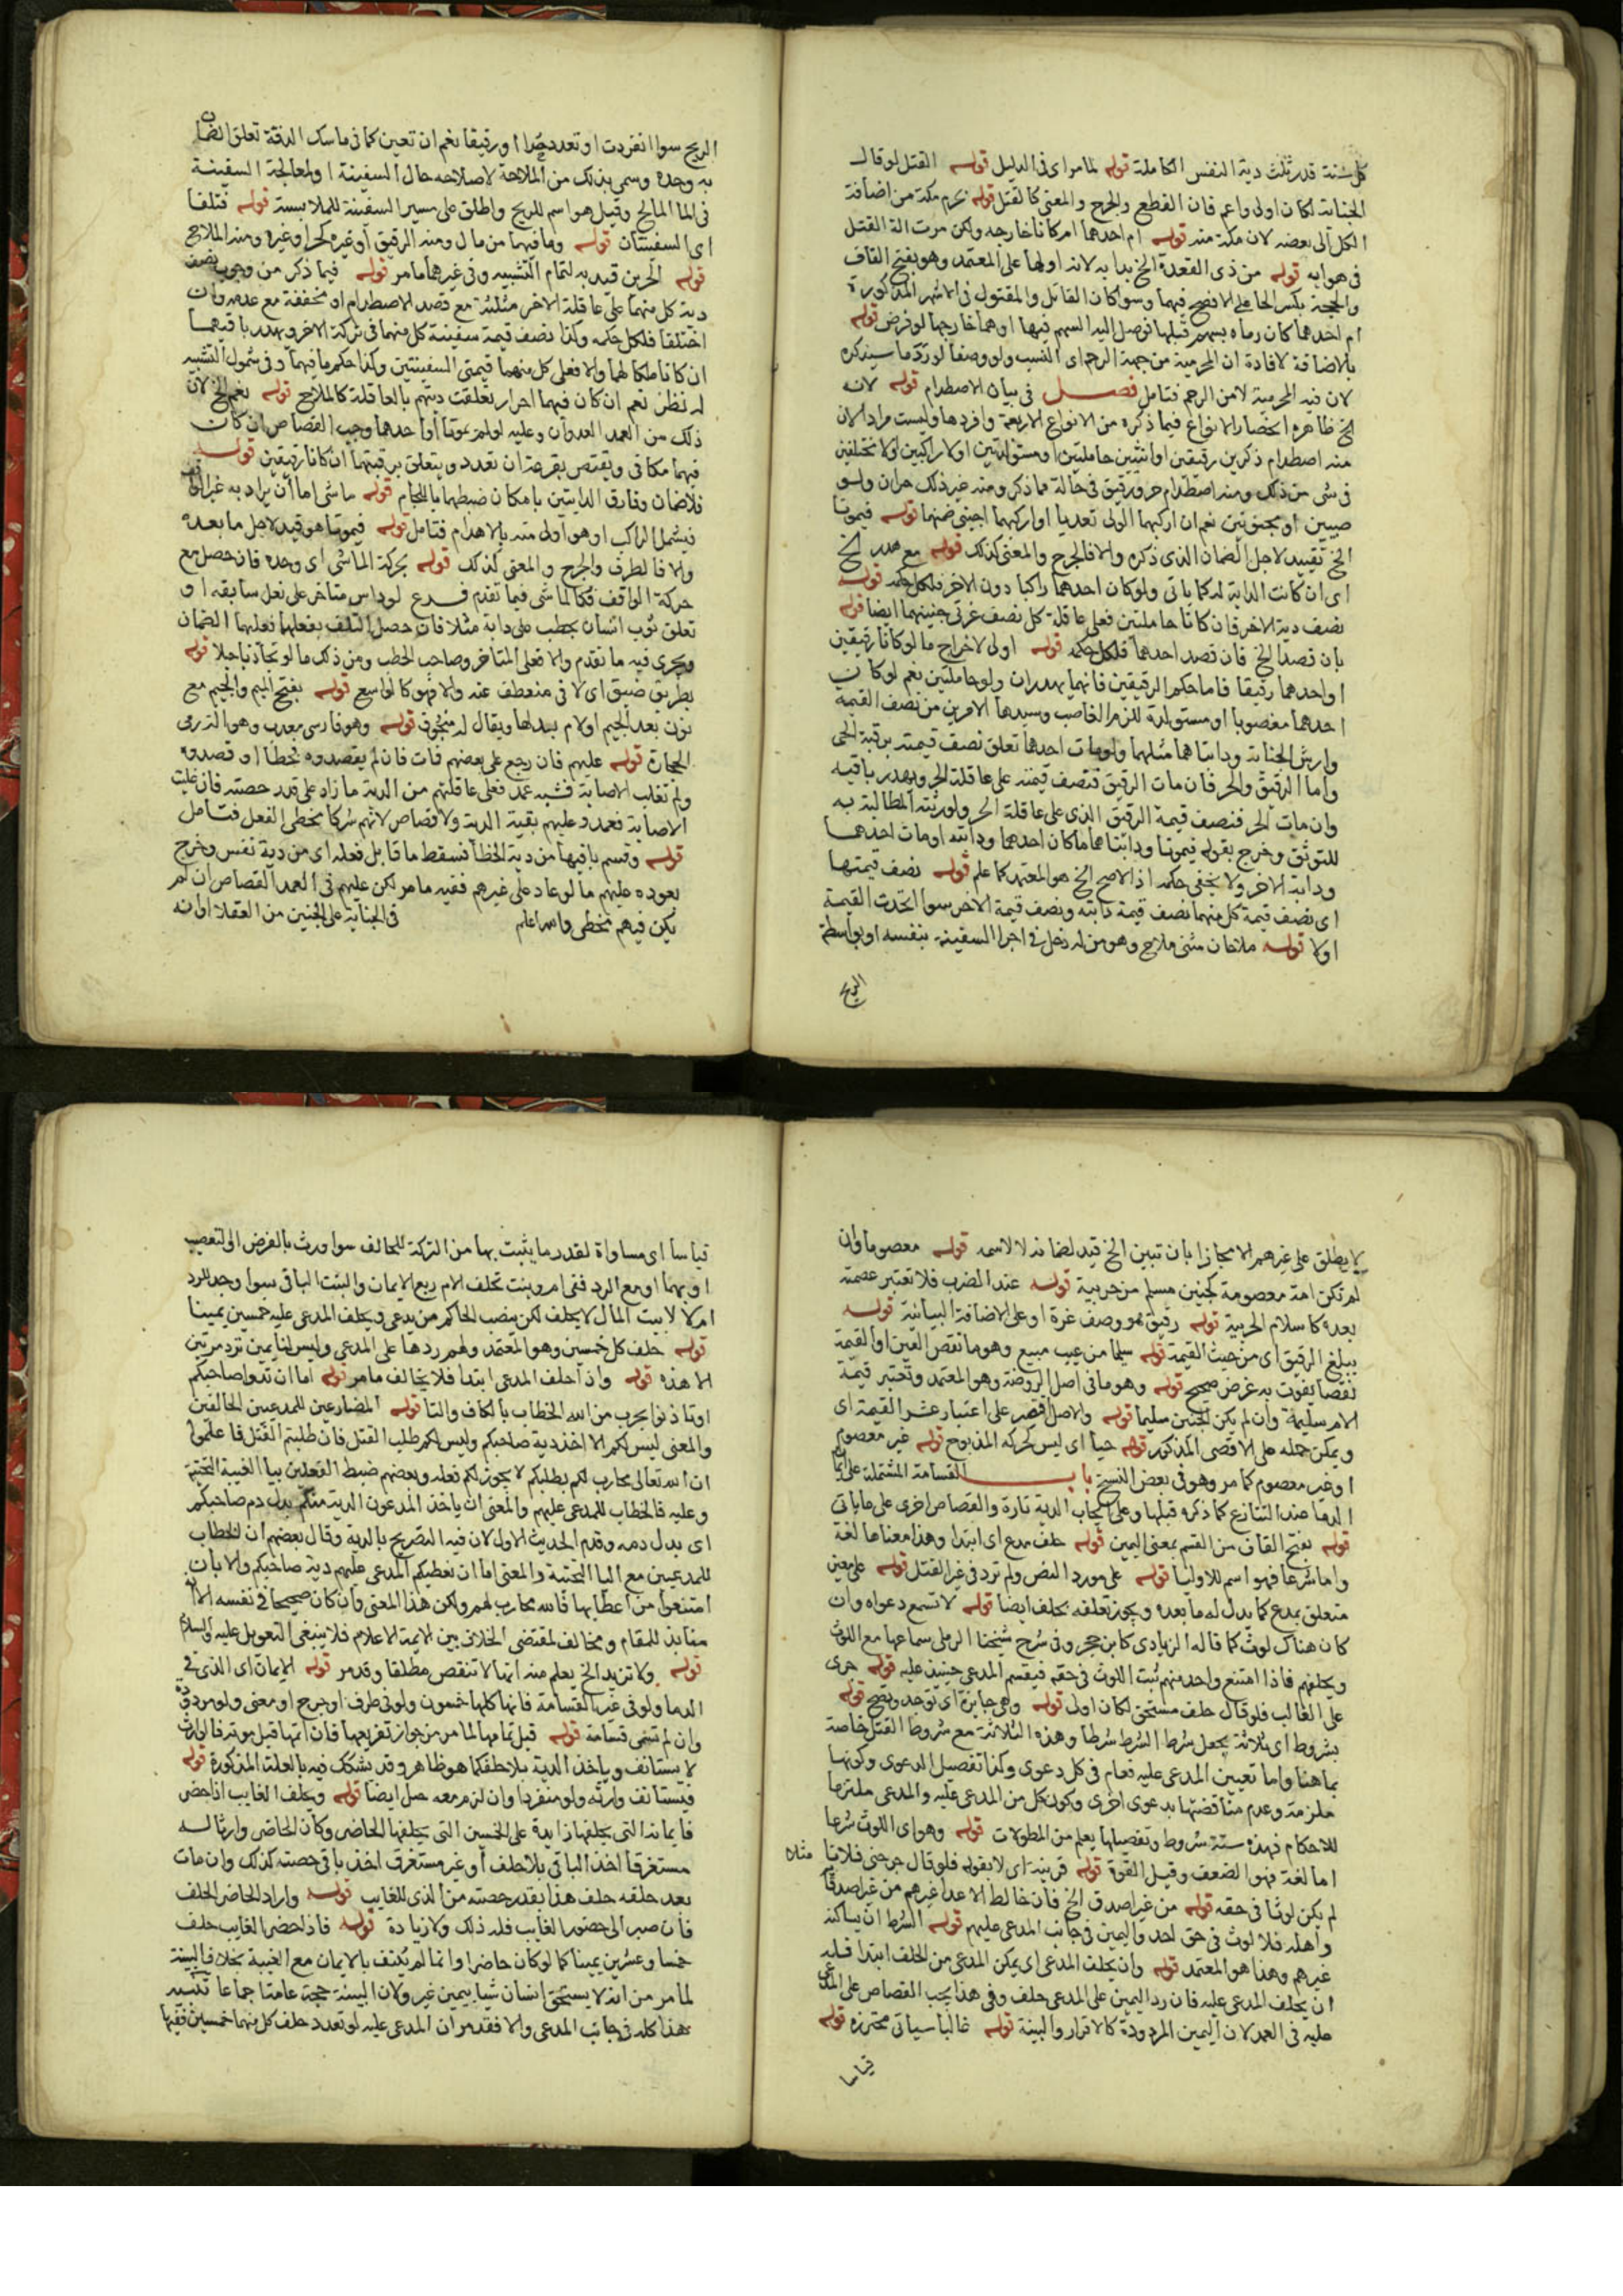 كل سنة قدر ثلث دية النفس الكاملة قوله لما مر اى فى الدليل قوله القتل لو قال
الجناية لكان اولى واعم فان القطع والجرح والمعنى كالقتل قوله حرم مكة من اضافة
الكل الى بعضه لان مكة منه قوله ام احدهما ام كانا خارجه ولكن مرت الة القتل
فى هوايه قوله من ذى القعدة الخ بدا به لانه اولها على المعتمد وهو بفتح القاف
والحجة بكسر الحا على الافصح فيهما وسوا كان القاتل والمقتول فى الاشهر المذكورة
ام احدهما كان رماه بسهم قبلها فوصل اليه السهم فيها او هما خارجها لو فرض قوله
بالاضافة لافادة ان المحرمية من جهة الرحم اى النسب ولو وصفا لورد ما سيذكره
لان فيه المحرمية لا من الرحم فتامل فصل فى بيان الاصطدام قوله لانه
الخ ظاهره انحصار الانواع فيما ذكره من الانواع الاربعة وافردها وليست مرادا لان
منه اصطدام ذكرين رقيقين او انثيين حاملتين او مستولدتين اولا راكبين اولا مختلفين
فى شى من ذلك ومنه اصطدام حر ورقيق فى حالة مما ذكر ومنه غير ذلك حران ولو
صبيين او مجنونين نعم ان اركبهما الولى تعديا او اركبهما اجنبى ضمنهما قوله فيموتا
الخ تقييد لاجل الضمان الذى ذكره والا فالجرح والمعنى كذلك قوله مع هدر الخ
اى ان كانت الدابة له كما ياتى ولو كان احدهما راكبا دون الاخر فلكل حكمه قوله
نصف دية الاخر فان كانا حاملتين فعلى عاقلة كل نصف غرتى جنينيهما ايضا قوله
بان قصدا الخ فان قصد احدهما فلكل حكمه قوله اولى لاخراج ما لو كانا رقيقين
او احدهما رقيقا فاما حكم الرقيقين فانهما يهدران ولو حاملتين نعم لو كان
احدهما مغصوبا او مستولدة للزم الغاصب وسيدها الاقل من نصف القيمة
وارش الجناية ودابتاهما مثلهما ولو مات احدهما تعلق نصف قيمته برقبة الحى
واما الرقيق والحر فان مات الرقيق فنصف قيمته على عاقلة الحر ويهدر باقيه
وان مات الحر فنصف قيمة الرقيق الذى على عاقلة الحر ولورثته المطالبة به
للتوثق وخرج بقوله فيموتا ودابتاهما ما كان احدهما ودابته او مات احدهما
ودابة الاخر ولا يخفى حكمه اذ الاصح الخ هو المعتمد كما علم قوله نصف قيمتها
اى نصف قيمة كل منهما نصف قيمة دابته ونصف قيمة الاخر سوا اتحدت القيمة
اولا قوله ملاحان مثنى ملاح وهو من له دخل فى اجرا السفينة بنفسه او بواسطة
الريح
الريح سوا انفردت او تعدد حرا او رقيقا نعم ان تعين كما فى ماسك الدفة تعلق الضمان
به وحده وسمى بذلك من الملاحة لاصلاحه حال السفينة او لمعالجة السفينة
فى الما المالح وقيل هو اسم للريح واطلق على مسير السفينة للملابسة قوله فتلفا
اى السفينتان قوله وما فيهما من مال ومنه الرقيق او غيره كحر او غيره ومنه الملاح
قوله الحرين قيد به لتمام التشبيه وفى غيرهما ما مر قوله فيما ذكر من وجوب نصف
دية كل منهما على عاقلة الاخر مثلثة مع قصد الاصطدام او مخففة مع عدمه وان
اختلفا فلكل حكمه وكذا نصف قيمة سفينة كل منهما فى تركة الاخر ويهدر باقيهما
ان كانا ملكا لهما والا فعلى كل منهما قيمتى السفينتين وكذا حكم ما فيهما وفى شمول التشبيه
له نظر نعم ان كان فيهما احرار تعلقت ديتهم بالعاقلة كالملاح قوله نعم الخ لان
ذلك من العمد العدوان وعليه لو لم يموتا او احدهما وجب القصاص ان كان
فيهما مكافى ويقتص بقرعة ان تعدد ويتعلق برقبتهما ان كانا رقيقين قوله
فلا ضمان وفارق الدابتين بامكان ضبطهما باللجام قوله ماشى اما ان يراد به غير الواقف
فيشمل الراكب او هو اولى منه بالاهدام فتامل قوله فيموتا هو قيد لاجل ما بعده
والا فالطرف والجرح والمعنى كذلك قوله بحركة الماشى اى وحده فان حصل مع
حركة الواقف فكالماشى فيما تقدم فرع لو داس متاخر على نعل سابقه او
تعلق ثوب انسان بحطب على دابة مثلا فان حصل التلف بفعلهما فعليهما الضمان
ويجرى فيه ما تقدم والا فعلى المتاخر وصاحب الحطب ومن ذلك ما لو تجاذبا حبلا قوله
بطريق ضيق اى لا فى منعطف عنه والا فهو كالواسع قوله بفتح الميم والجيم مع
نون بعد الجيم اولام بدلها ويقال له منجوق قوله وهو فارسى معرب وهو الة رمى
الحجارة قوله عليهم فان رجع على بعضهم فات فان لم يقصدوه فخطا او قصدوه
ولم تغلب الاصابة فشبه عمد فعلى عاقلتهم من الدية ما زاد على قدر حصته فان غلبت
الاصابة فعمد وعليهم بقية الدية ولا قصاص لانهم شركا مخطى الفعل فتامل
قوله وقسم باقيها من دية الخطا فسقط ما قابل فعله اى من دية نفس وخرج
بعوده عليهم ما لو عاد على غيرهم ففيه ما مر لكن عليهم فى العمد القصاص ان لم
يكن فيهم مخطى والله اعلم فى الجناية على الجنين من العقلا او انه
لا يطلق على غيرهم الا مجازا بان تبين الخ قيد لضمانه لا لاسمه قوله معصوما وان
لم تكن امه معصومة كجنين مسلم من حربية قوله عند الضرب فلا تعتبر عصمته
بعده كاسلام الحربية قوله رقيق هو وصف غرة او على الاضافة البيانية قوله
يبلغ الرقيق اى من حيث القيمة قوله سليما من عيب مبيع وهو ما نقص العين او القيمة
نقصا يفوت به غرض صحيح قوله وهو ما فى اصل الروضة وهو المعتمد وتعتبر قيمة
الام سليمة وان لم يكن الجنين سليما قوله والاصل اقتصر على اعتبار عشر القيمة اى
ويمكن حمله على الاقصى المذكور قوله حيا اى ليس كحركه المذبوح قوله غير معصوم
او غير معصوم كما مر وهو فى بعض النسخ باب القسامة المشتملة على ايمان
الدما عند التنازع كما ذكره قبلها وعلى ايجاب الدية تارة والقصاص اخرى على ما ياتى
قوله بفتح القاف من القسم بمعنى اليمين قوله حلف مدع اى ابتدا وهذا معناها لغة
واما شرعا فهو اسم للاوليا قوله على مورد النص ولم ترد فى غير القتل قوله على معين
متعلق بمدع كما يدل له ما بعده ويجوز تعلقه بحلف ايضا قوله لا تسمع دعواه وان
كان هناك لوث كما قاله الزيادى كابن حجر وفى شرح شيخنا الرملى سماعها مع اللوث
ويحلفهم فاذا امتنع واحد منهم ثبت اللوث فى حقه فيقسم المدعى حينيذ عليه قوله جرى
على الغالب فلو قال حلف مستحق لكان اولى قوله وهى جايزة اى توجد وتصح قوله
بشروط اى ثلاثة بجعل شرط الشرط شرطا وهذه الثلاثة مع شروط القتل خاصة
بما هنا واما تعيين المدعى عليه فعام فى كل دعوى وكذا تفصيل الدعوى وكونها
ملزمة وعدم مناقضتها بدعوى اخرى وكون كل من المدعى عليه والمدعى ملتزما
للاحكام فهذه ستة شروط وتفصيلها يعلم من المطولات قوله وهو اى اللوث شرعا
اما لغة فهو الضعف وقيل القوة قوله قرينة اى لا بقوله فلو قال جرحنى فلان مثلا
لم يكن لوثا فى حقه قوله من غير اصدق الخ فان خالط الاعدا غيرهم من غير اصدقا
واهله فلا لوث فى حق احد واليمين فى جانب المدعى عليهم قوله الشرط ان يساكنه
غيرهم وهذا هو المعتمد قوله وان يحلف المدعى اى يمكن المدعى من الحلف ابتدا قبله
ان يحلف المدعى عليه فان رد اليمين على المدعى حلف وفى هذا يجب القصاص على المدعى
عليه فى العمد لان اليمين المردودة كالاقرار والبينة قوله غالبا سياتى محترزه قوله
قياسا
قياسا اى مساواة لقدر ما يثبت بها من التركة للحالف سوا ورث بالفرض او التعصيب
او بهما او مع الرد ففى ام وبنت تحلف الام ربع الايمان والبنت الباقى سوا وجد للرد
ام لا لا بيت المال لا يحلف لكن ينصب الحاكم من يدعى ويحلف المدعى عليه خمسين يمينا
قوله حلف كل خمسين وهو المعتمد ولهم ردها على المدعى وليس لنا يمين ترد مرتين
الا هذه قوله وان احلف المدعى ابتدا فلا يخالف ما مر قوله اما ان تدوا صاحبكم
او تاذنوا بحرب من الله الخطاب بالكاف والتا قوله المضارعين للمدعيين الحالفين
والمعنى ليس لكم الا اخذ دية صاحبكم وليس لكم طلب القتل فان طلبتم القتل فاعلموا
ان الله تعالى محارب لكم بطلبكم لا يجوز لكم فعله وبعضهم ضبط الفعلين بيا الغيبة التحتية
وعليه فالخطاب للمدعى عليهم والمعنى ان ياخذ المدعون الدية منكم بدل دم صاحبكم
اى بدل دمه وقدم الحديث الاول لان فيه التصريح بالدية وقال بعضهم ان الخطاب
للمدعيين مع اليا التحتية والمعنى اما ان يعطيكم المدعى عليهم دية صاحبكم والا بان
امتنعوا من اعطايها فالله محارب لهم ولكن هذا المعنى وان كان صحيحا فى نفسه الا انه
منابذ للمقام ومخالف لمقتضى الخلاف بين الايمة الاعلام فلا ينبغى التعويل عليه والسلام
قوله ولا تزيد الخ يعلم منه انها لا تنقص مطلقا وقد مر قوله الايمان اى الذى فى
الدما ولو فى غير القسامة فانها كلها خمسون ولو فى طرف او جرح او معنى ولو مردودة
وان لم تسمى قسامة قوله قبل تمامها لما مر من جواز تفريقها فان اتمها قبل موته فالوارث
لا يستانف وياخذ الدية بلا حلف كما هو ظاهر وقد يشكك فيه بالعلة المذكورة قوله
فيستانف وارثه ولو منفردا وان لزم معه حمل ايضا قوله ويحلف الغايب اذا حضر
فايمانه التى يحلفها زايدة على الخمسين التى يحلفها الحاضر وكان الحاضر وارثا له
مستغرقا اخذ الباقى بلا حلف او غير مستغرق اخذ باقى حصته كذلك وان مات
بعد حلفه حلف هذا بقدر حصته من الذى للغايب قوله واراد الحاضر الحلف
فان صبر الى حضور الغايب فله ذلك ولا زيادة قوله فاذا حضر الغايب حلف
خمسا وعشرين يمينا كما لو كان حاضرا وانما لم يكتف بالايمان مع الغيبة بخلاف البينة
لما مر من انه لا يستحق انسان شيا بيمين غيره ولان البينة حجة عامة اجماعا تنبيه
هذا كله فى جانب المدعى والا فقد مر ان المدعى عليه لو تعدد حلف كل منهما خمسين ففيها